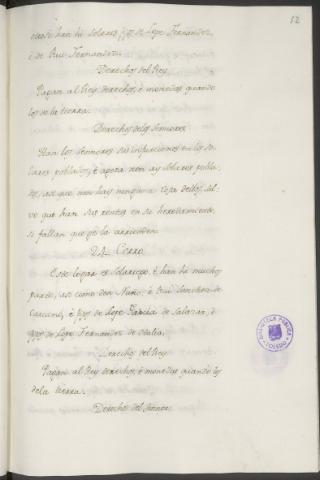 52
otrosi han hi solares fijos de Lope Fernandez,
é de Rui Fernandez.
Derechos del Rey.
Pagan al Rey derechos, é monedas quando
los de la tierra.
Derechos delos Sennores.
Han los sennores sus infurciones en los so-
lares poblados, é agora non ay solares pobla-
dos, asi que non hay ninguna cosa dellos, sal-
vo que han sus rentas en su heredamiento
si fallan quien gelo arrienden.
El Cerro.
Este logar es Solariego, é han hi muchos
parte, asi como don Nuño, é Rui Sanchez de
é fijos de Lope Garcia de Salazar, é
fijos de Lope Fernandez de
Derechos del Rey.
Pagan al Rey derechos, é monedas quando los
dela tierra.
Derechos del Sennor.
BIBLIOTECA PUBLICA
TOLEDO